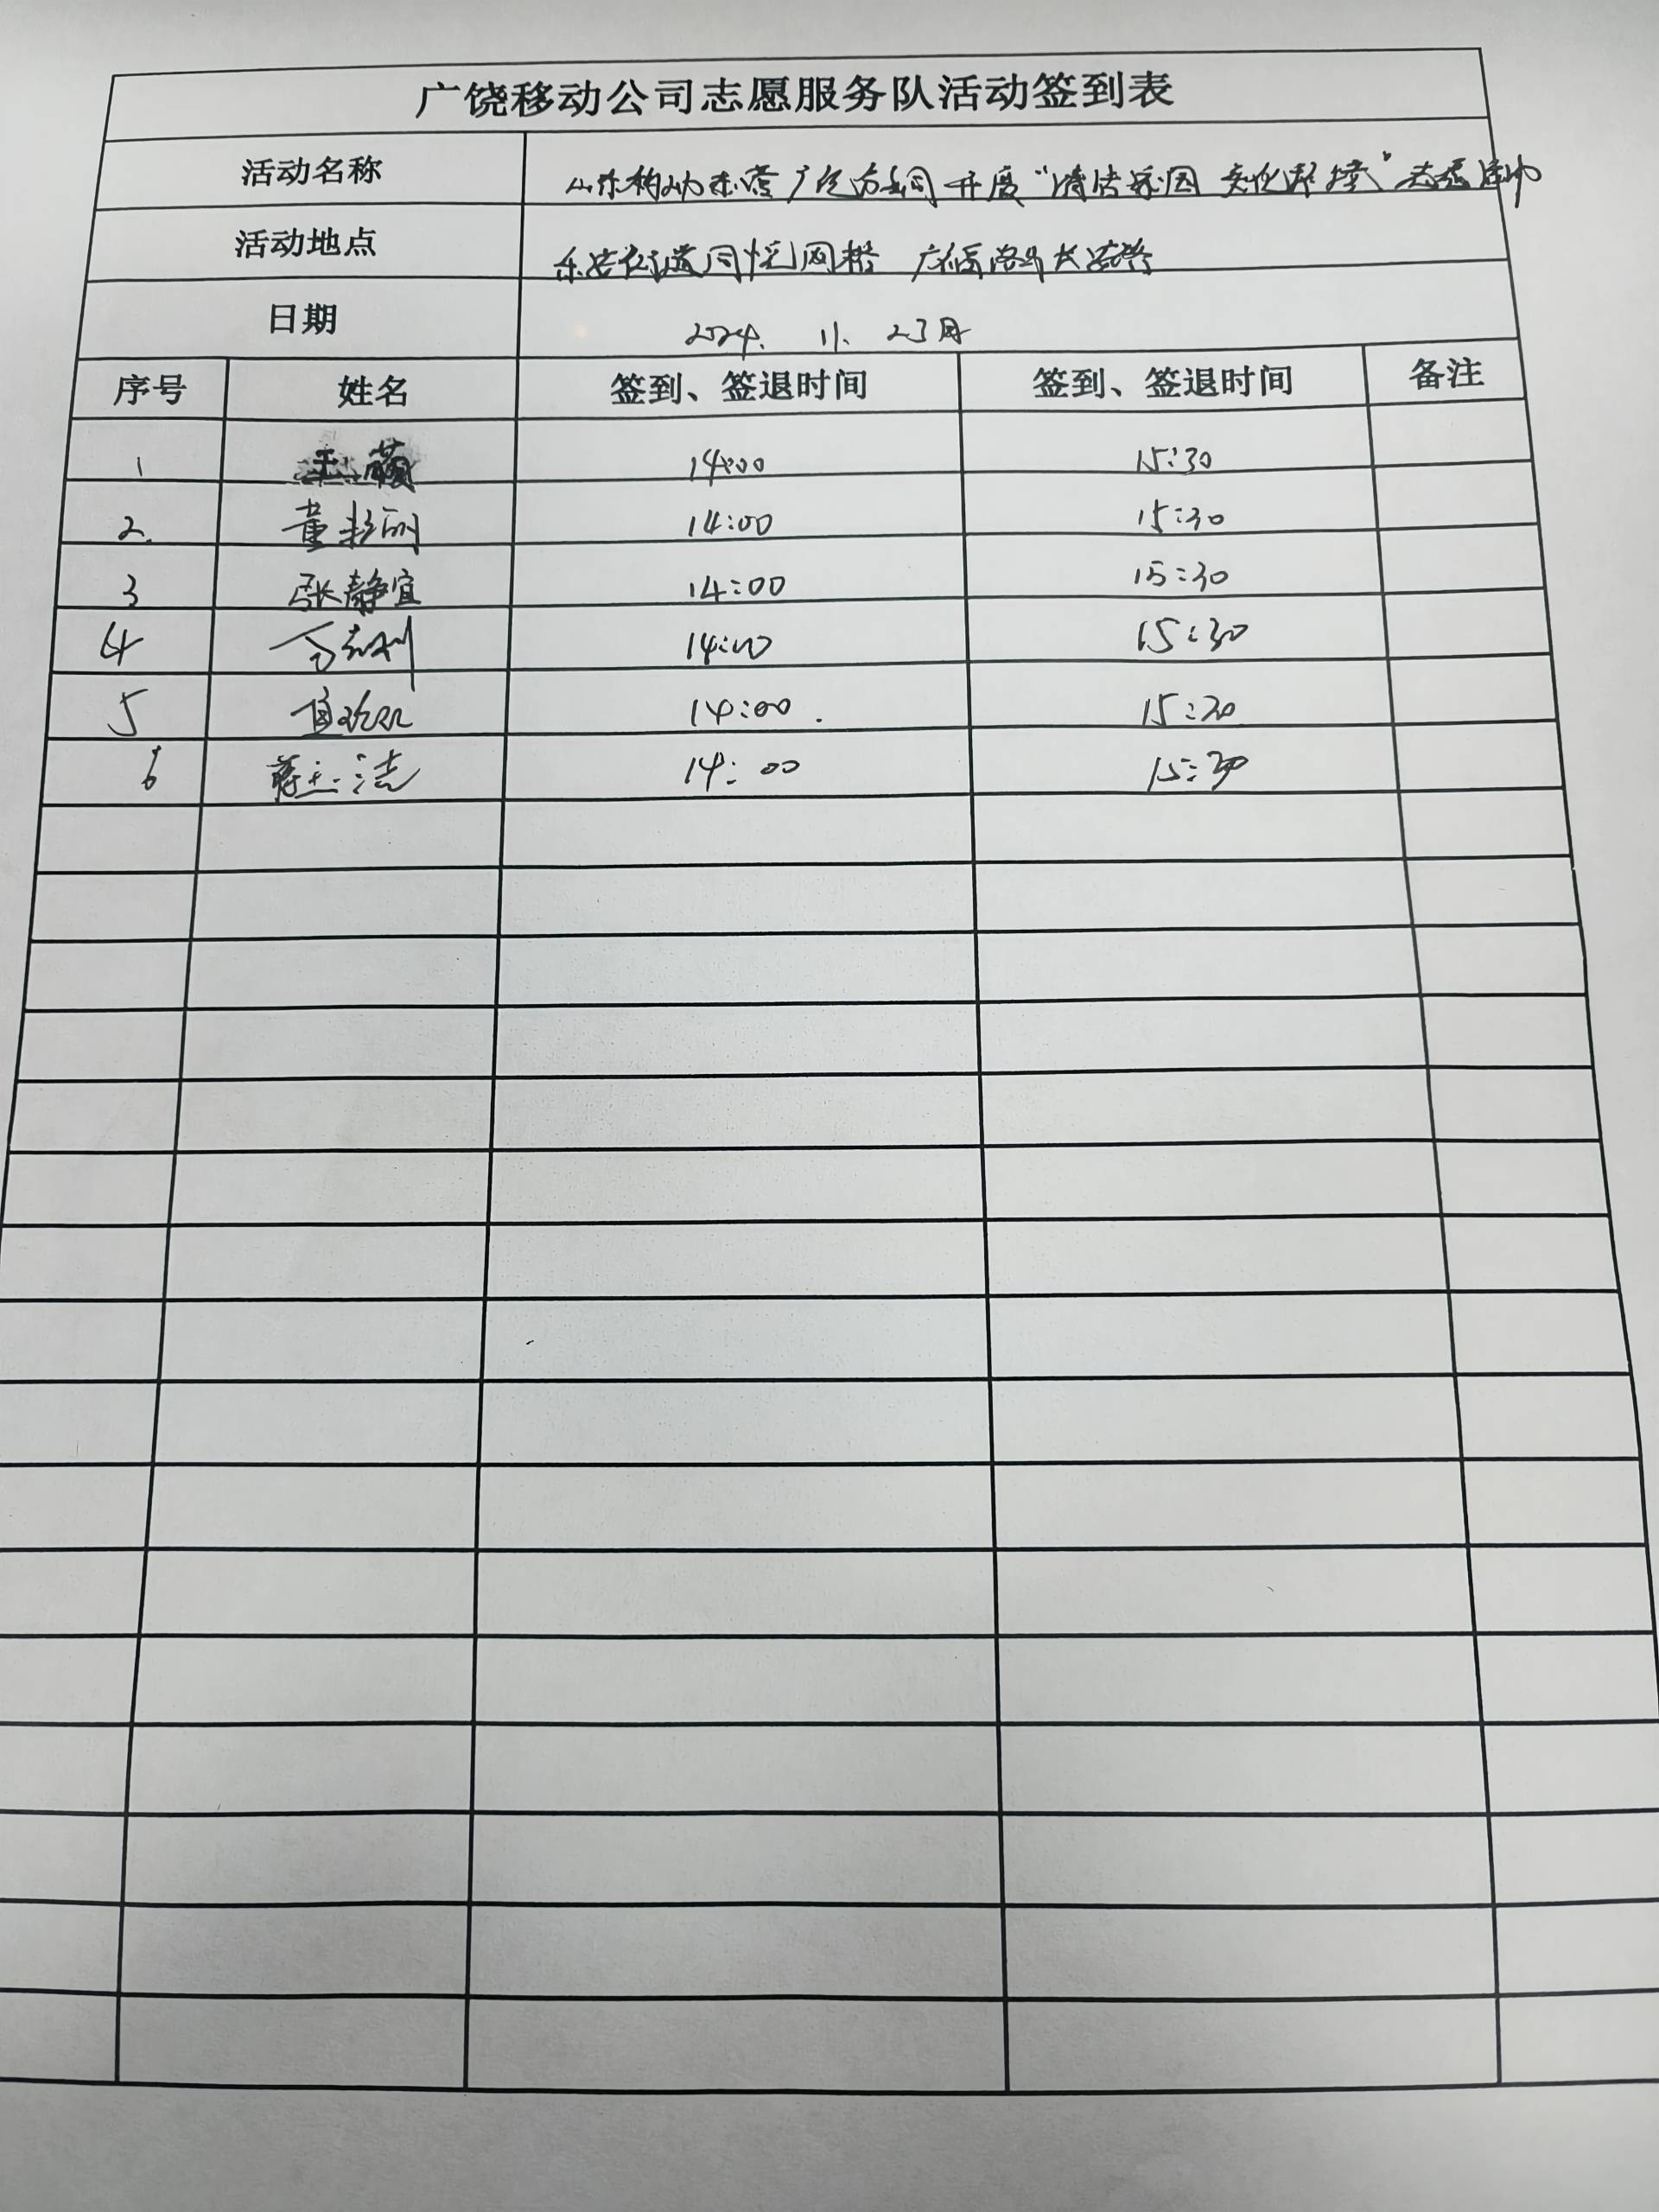 广饶移动公司志愿服务队活动签到表
活动名称 山东移动东营广饶分公司开展“清洁家园 美化环境”志愿活动
活动地点 乐安街道同悦网格
日期 2024. 11. 23日
序号 姓名 签到、签退时间 签到、签退时间 备注
1 王 14:00 15:30
2. 董彩丽 14:00 15:30
3 张静宜 14:00 15:30
4 14:00 15:30
5 14:00. 15:30
6 蒋玉洁 14:00 15:30